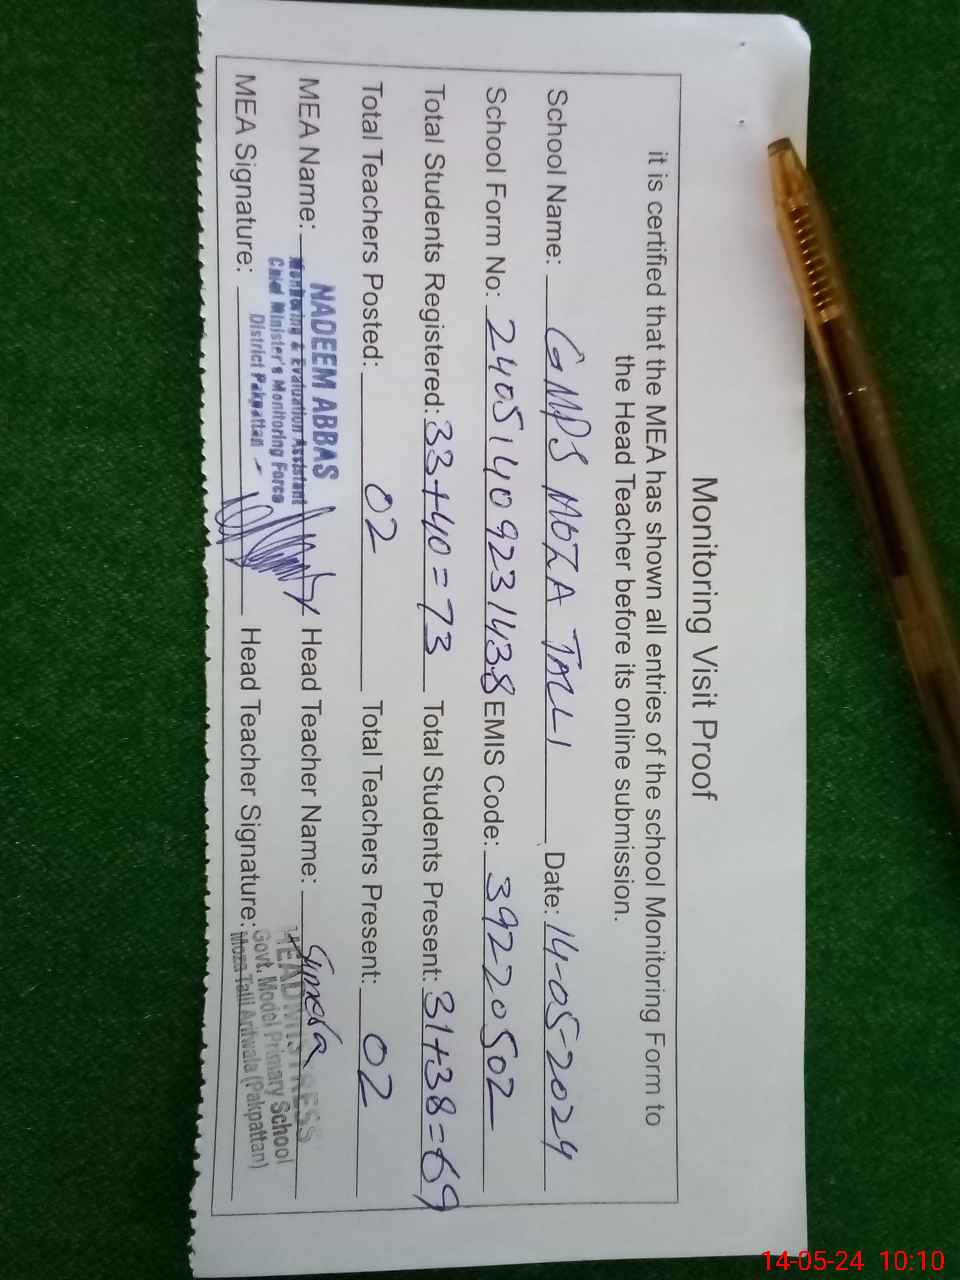 Monitoring Visit Proof
it is certified that the MEA has shown all entries of the school Monitoring Form to
the Head Teacher before its online submission.
School Name: GMPS MOZA TALLI Date: 14-05-2024
School Form No: 24051409231438 EMIS Code: 39220502
Total Students Registered: 33+40=73 Total Students Present: 31+38=69
Total Teachers Posted: 02 Total Teachers Present: 02
MEA Name: NADEEM ABBAS Head Teacher Name:
Monitoring & Evaluation Assistant
Chief Minister's Monitoring Force
District Pakpattan
HEADMISTRESS
Govt. Model Primary School
Moza Talli Arifwala (Pakpattan)
MEA Signature: Head Teacher Signature:
14-05-24 10:10